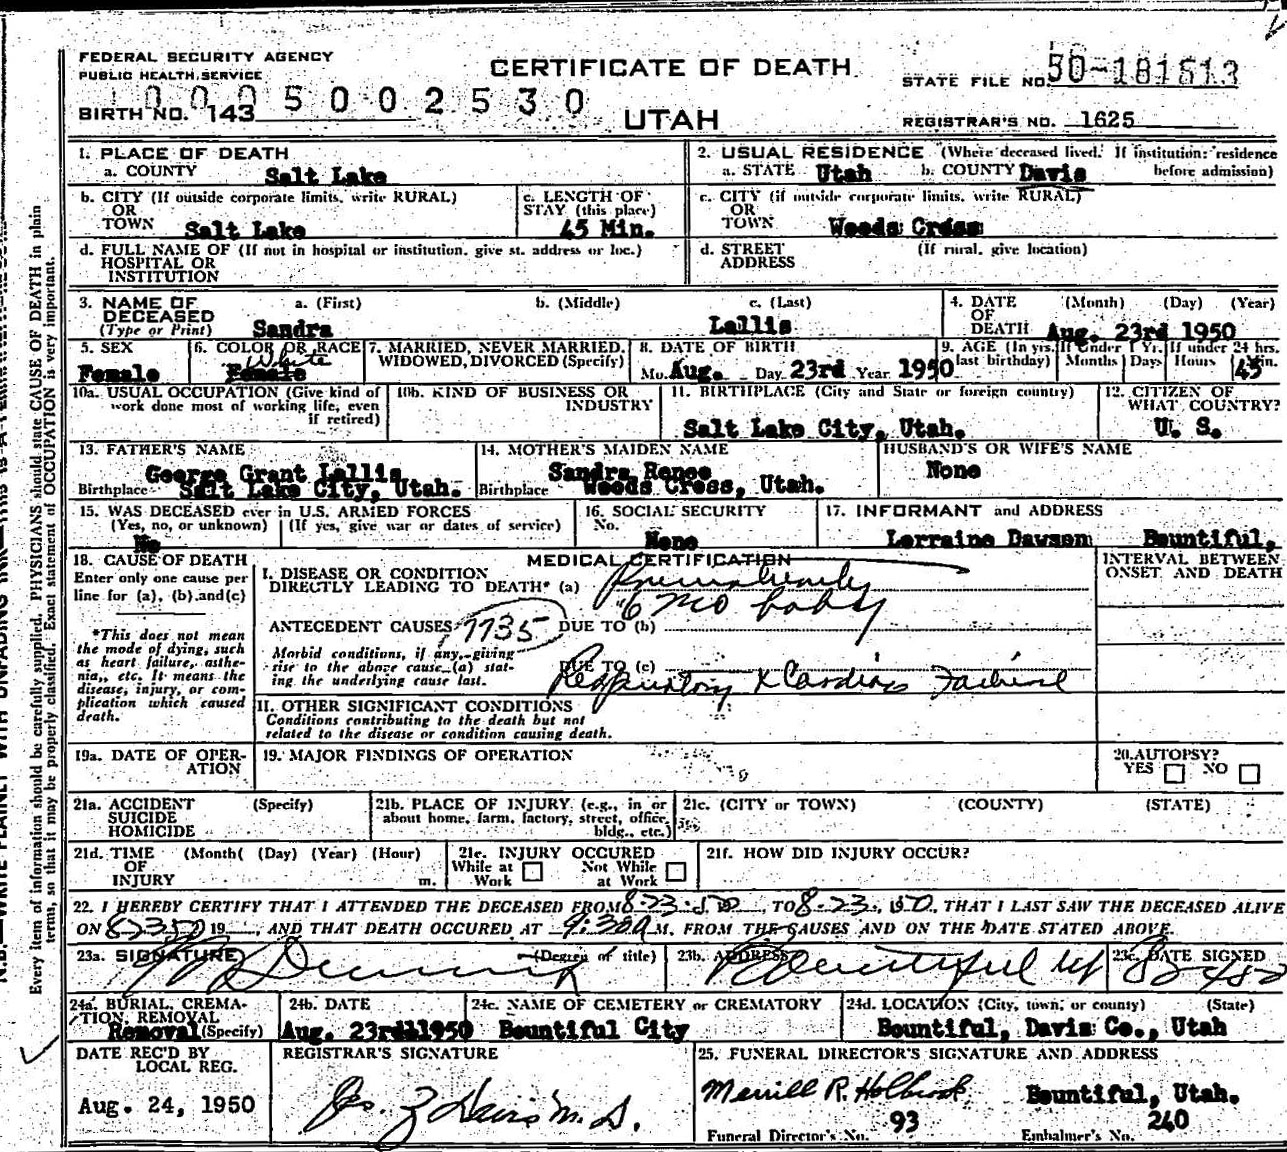 FEDERAL SECURITY AGENCY
PUBLIC HEALTH SERVICE
CERTIFICATE OF DEATH
STATE FILE NO. 50-181613
1 0 0 0 5 0 0 2 5 3 0
BIRTH NO. 143
UTAH
REGISTRAR'S NO. 1625
1. PLACE OF DEATH
a. COUNTY Salt Lake
2. USUAL RESIDENCE (Where deceased lived. If institution: residence before admission)
a. STATE Utah b. COUNTY Davis
b. CITY (If outside corporate limits, write RURAL)
OR
TOWN Salt Lake
c. LENGTH OF
STAY (this place)
45 Min.
c. CITY (if outside corporate limits, write RURAL)
OR
TOWN Woods Cross
d. FULL NAME OF (If not in hospital or institution, give st. address or loc.)
HOSPITAL OR
INSTITUTION
d. STREET (If rural, give location)
ADDRESS
3. NAME OF DECEASED
(Type or Print)
a. (First) b. (Middle) c. (Last)
Sandra Lallis
4. DATE OF DEATH (Month) (Day) (Year)
Aug. 23rd 1950
5. SEX
Female
6. COLOR OR RACE
White
Female
7. MARRIED, NEVER MARRIED,
WIDOWED, DIVORCED (Specify)
8. DATE OF BIRTH
Mo. Aug. Day 23rd Year 1950
9. AGE (In yrs. last birthday) If Under 1 Yr. Months Days If under 24 hrs. Hours Min.
45
10a. USUAL OCCUPATION (Give kind of
work done most of working life, even
if retired)
10b. KIND OF BUSINESS OR
INDUSTRY
11. BIRTHPLACE (City and State or foreign country)
Salt Lake City, Utah.
12. CITIZEN OF
WHAT COUNTRY?
U. S.
13. FATHER'S NAME
George Grant Lallis
Birthplace Salt Lake City, Utah.
14. MOTHER'S MAIDEN NAME
Sandra Renee
Birthplace Woods Cross, Utah.
HUSBAND'S OR WIFE'S NAME
None
15. WAS DECEASED ever in U.S. ARMED FORCES
(Yes, no, or unknown) (If yes, give war or dates of service)
No
16. SOCIAL SECURITY
No.
None
17. INFORMANT and ADDRESS
Lorraine Dawson Bountiful,
18. CAUSE OF DEATH
Enter only one cause per
line for (a), (b), and (c)
*This does not mean
the mode of dying, such
as heart failure, asthe-
nia, etc. It means the
disease, injury, or com-
plication which caused
death.
MEDICAL CERTIFICATION
INTERVAL BETWEEN
ONSET AND DEATH
I. DISEASE OR CONDITION
DIRECTLY LEADING TO DEATH* (a) Prematurity
6 mo baby
ANTECEDENT CAUSES 7735 DUE TO (b)
Morbid conditions, if any, giving
rise to the above cause (a) stat-
ing the underlying cause last.
DUE TO (c)
Respiratory & Cardiac Failure
II. OTHER SIGNIFICANT CONDITIONS
Conditions contributing to the death but not
related to the disease or condition causing death.
19a. DATE OF OPER-
ATION
19. MAJOR FINDINGS OF OPERATION
20. AUTOPSY?
YES NO
21a. ACCIDENT (Specify)
SUICIDE
HOMICIDE
21b. PLACE OF INJURY (e.g., in or
about home, farm, factory, street, office
bldg., etc.)
21c. (CITY or TOWN) (COUNTY) (STATE)
21d. TIME (Month( (Day) (Year) (Hour)
OF
INJURY m.
21e. INJURY OCCURED
While at Work Not While at Work
21f. HOW DID INJURY OCCUR?
22. I HEREBY CERTIFY THAT I ATTENDED THE DECEASED FROM 8-23-50, TO 8-23, 50, THAT I LAST SAW THE DECEASED ALIVE
ON 82350 19 , AND THAT DEATH OCCURED AT 9:30a M. FROM THE CAUSES AND ON THE DATE STATED ABOVE.
23a. SIGNATURE (Degree of title)
23b. ADDRESS Bountiful Ut
23c. DATE SIGNED
24a. BURIAL, CREMA-
TION, REMOVAL
Removal (Specify)
24b. DATE
Aug. 23rd 1950
24c. NAME OF CEMETERY or CREMATORY
Bountiful City
24d. LOCATION (City, town, or county) (State)
Bountiful, Davis Co., Utah
DATE REC'D BY
LOCAL REG.
Aug. 24, 1950
REGISTRAR'S SIGNATURE
25. FUNERAL DIRECTOR'S SIGNATURE AND ADDRESS
Merrill R. Holbrook Bountiful, Utah.
93 240
Funeral Director's No. Embalmer's No.
Every item of information should be carefully supplied. PHYSICIANS should state CAUSE OF DEATH in plain
terms, so that it may be properly classified. Exact statement of OCCUPATION is very important.